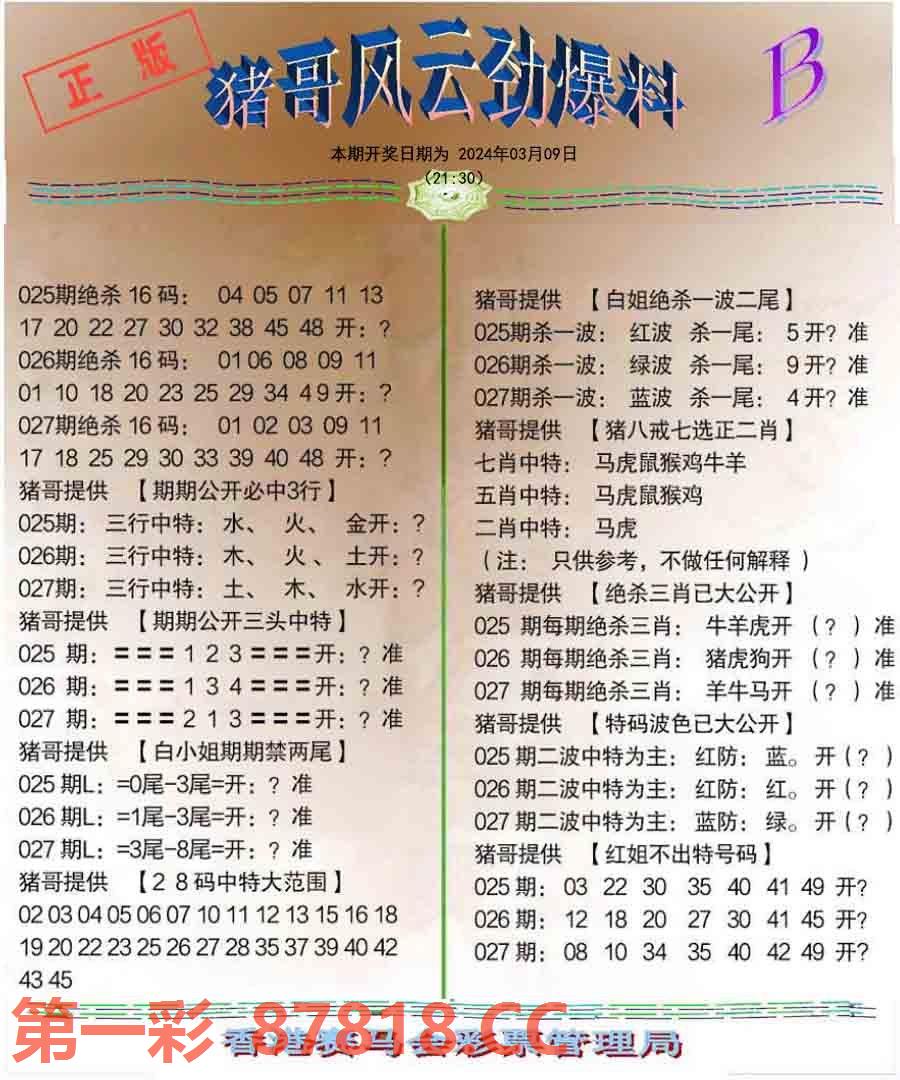 正版
猪哥风云劲爆料
B
本期开奖日期为 2024年03月09日
(21:30)
025期绝杀16码： 04 05 07 11 13
17 20 22 27 30 32 38 45 48 开：？
026期绝杀16码： 01 06 08 09 11
01 10 18 20 23 25 29 34 49开：？
027期绝杀16码： 01 02 03 09 11
17 18 25 29 30 33 39 40 48 开：？
猪哥提供 【期期公开必中3行】
025期：三行中特：水、 火、 金开：？
026期：三行中特：木、 火、 土开：？
027期：三行中特：土、 木、 水开：？
猪哥提供 【期期公开三头中特】
025 期：＝＝＝1 2 3＝＝＝开：？准
026 期：＝＝＝1 3 4＝＝＝开：？准
027 期：＝＝＝2 1 3＝＝＝开：？准
猪哥提供 【白小姐期期禁两尾】
025期L：=0尾-3尾=开：？准
026期L：=1尾-3尾=开：？准
027期L：=3尾-8尾=开：？准
猪哥提供 【２８码中特大范围】
02 03 04 05 06 07 10 11 12 13 15 16 18
19 20 22 23 25 26 27 28 35 37 39 40 42
43 45
猪哥提供 【白姐绝杀一波二尾】
025期杀一波： 红波 杀一尾： 5开？准
026期杀一波： 绿波 杀一尾： 9开？准
027期杀一波： 蓝波 杀一尾： 4开？准
猪哥提供 【猪八戒七选正二肖】
七肖中特： 马虎鼠猴鸡牛羊
五肖中特： 马虎鼠猴鸡
二肖中特： 马虎
（注： 只供参考，不做任何解释 ）
猪哥提供 【绝杀三肖已大公开】
025 期每期绝杀三肖： 牛羊虎开 （？）准
026 期每期绝杀三肖： 猪虎狗开 （？）准
027 期每期绝杀三肖： 羊牛马开 （？）准
猪哥提供 【特码波色已大公开】
025期二波中特为主： 红防： 蓝。 开（？）
026期二波中特为主： 红防： 红。 开（？）
027期二波中特为主： 蓝防： 绿。 开（？）
猪哥提供 【红姐不出特号码】
025期： 03 22 30 35 40 41 49 开？
026期： 12 18 20 27 30 41 45 开？
027期： 08 10 34 35 40 42 49 开？
第一彩 87818.CC
香港赛马会彩票管理局